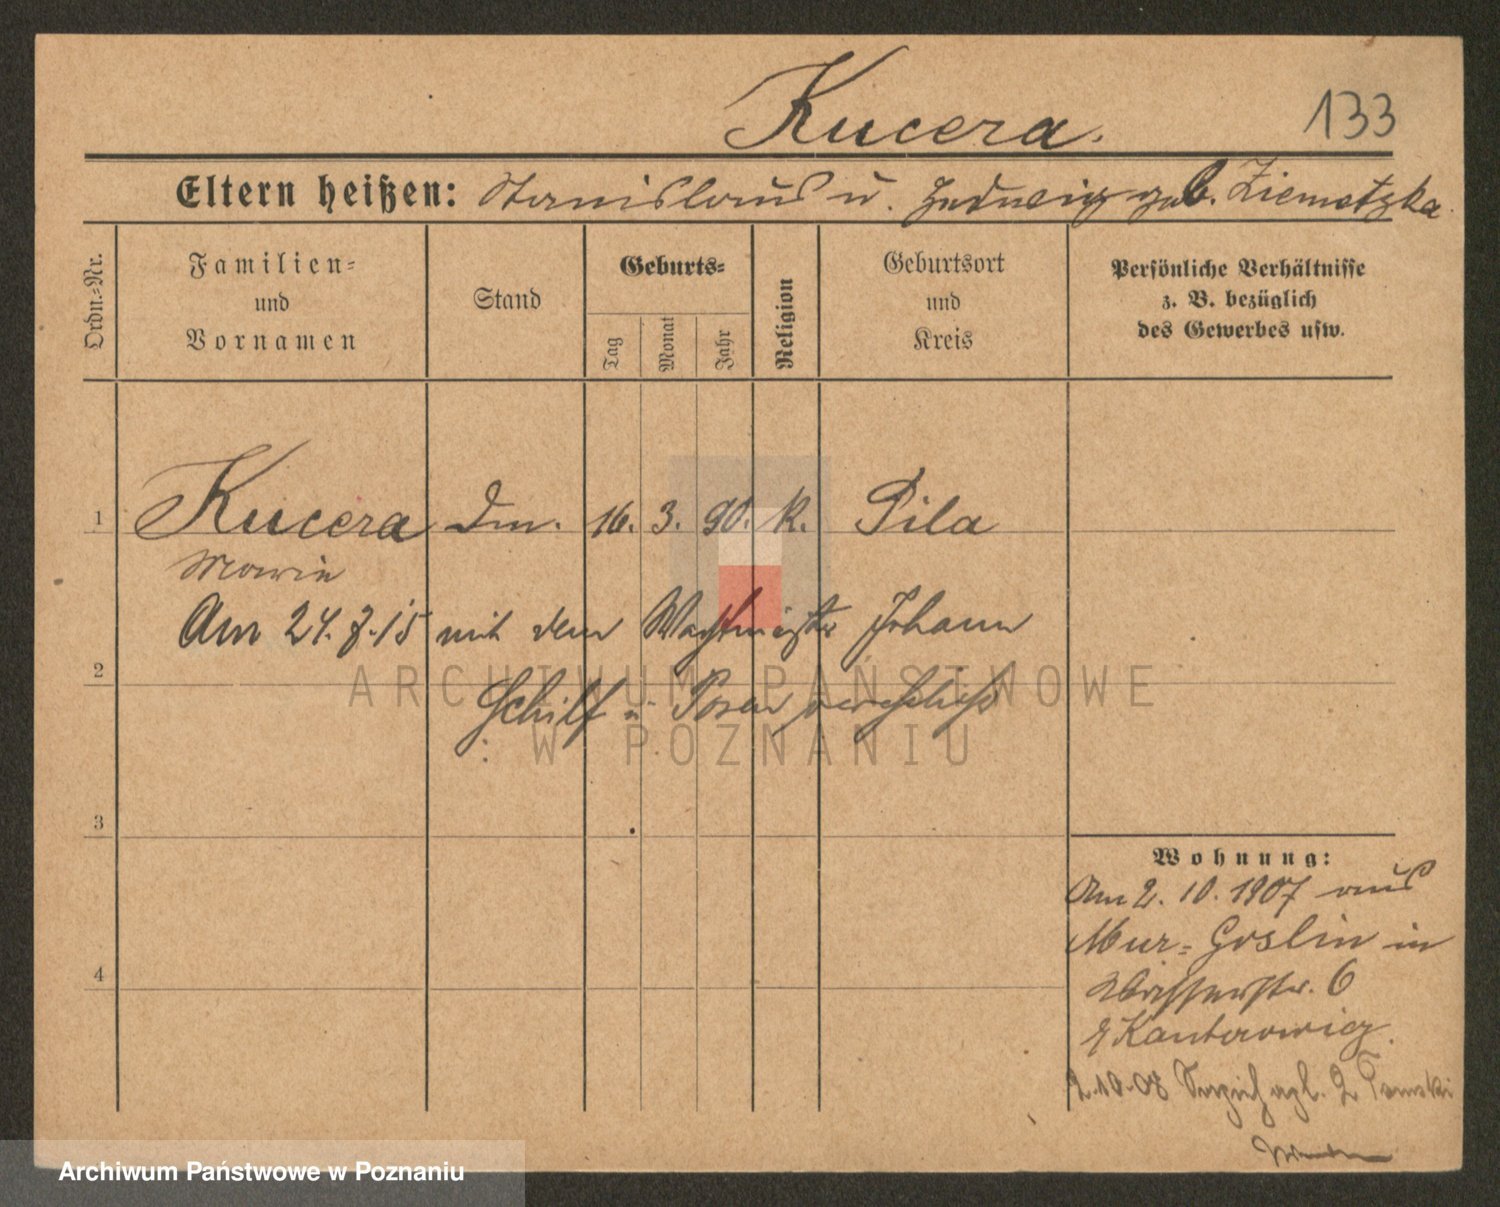 Kucera.
133
Eltern heißen: Stanislaus u. Hedwig geb. Ziemetzka
Ordn.-Nr.
Familien-
und
Vornamen
Stand
Geburts-
Tag
Monat
Jahr
Religion
Geburtsort
und
Kreis
Persönliche Verhältnisse
z. B. bezüglich
des Gewerbes usw.
1 Kucera Dm. 16. 3. 90. k. Pila
Marie
Am 24. 7. 15 mit dem Wachtmeister Johann
2
Schilf Posen verehel.
3
4
Wohnung:
Am 2. 10. 1907 aus
Mur-Goslin in
Wasserstr. 6
Kantorowicz.
2.10.08
ARCHIWUM PAŃSTWOWE
W POZNANIU
Archiwum Państwowe w Poznaniu